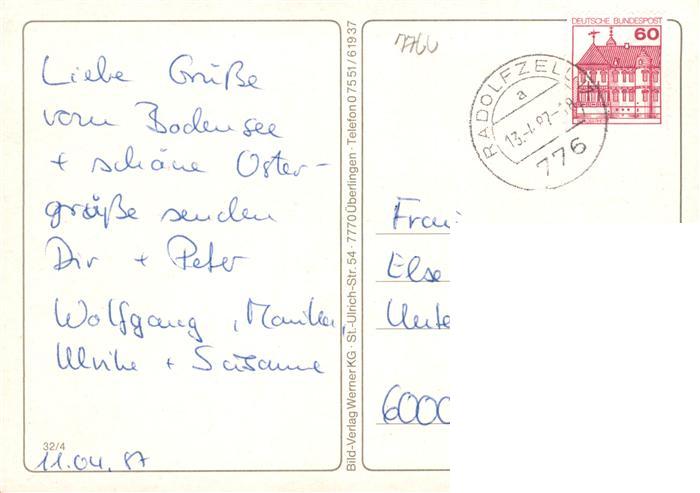 Liebe Grüße
vom Bodensee
+ schöne Oster-
grüße senden
Dir + Peter
Wolfgang, Monika,
Ulrike + Susanne
32/4
11.04.87
Bild-Verlag Werner KG · St.-Ulrich-Str. 54 · 7770 Überlingen · Telefon 07551/61937
7760
DEUTSCHE BUNDESPOST
60
RADOLFZELL
a
776
Frau
Else
Unte
6000